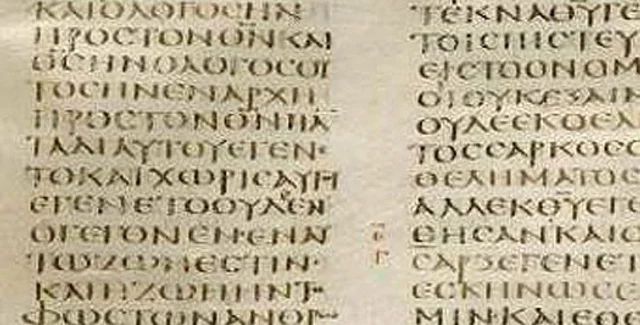 ΚΑΙΟΛΟΓΟϹΗΝ
ΠΡΟϹΤΟΝΘ̅Ν̅ΚΑΙ
Θ̅Ϲ̅ΗΝΟΛΟΓΟϹΟΥ
ΤΟϹΗΝΕΝΑΡΧΗ
ΠΡΟϹΤΟΝΘ̅Ν̅ΠΑ
ΤΑΔΙΑΥΤΟΥΕΓΕΝΕ
ΤΟΚΑΙΧΩΡΙϹΑΥΤΟΥ
ΕΓΕΝΕΤΟΟΥΔΕΝ
ΟΓΕΓΟΝΕΝ·ΕΝΑΥ
ΤΩΖΩΗΕϹΤΙΝ·
ΚΑΙΗΖΩΗΗΝΤΟ
ΦΩϹΤΩΝΑΝΘΡΩ
ΤΕΚΝΑΘ̅Υ̅ΓΕ
ΤΟΙϹΠΙϹΤΕΥ
ΕΙϹΤΟΟΝΟΜ
ΟΙΟΥΚΕΞΑΙΜ
ΟΥΔΕΕΚΘΕΛ
ΤΟϹϹΑΡΚΟϹΟ
ΘΕΛΗΜΑΤΟϹ
ΑΛΛΕΚΘ̅Υ̅ΕΓΕ
ΘΗϹΑΝΚΑΙΟ
ϹΑΡΞΕΓΕΝΕΤ
ΕϹΚΗΝΩϹΕ
ΜΙΝ·ΚΑΙΕΘΕ